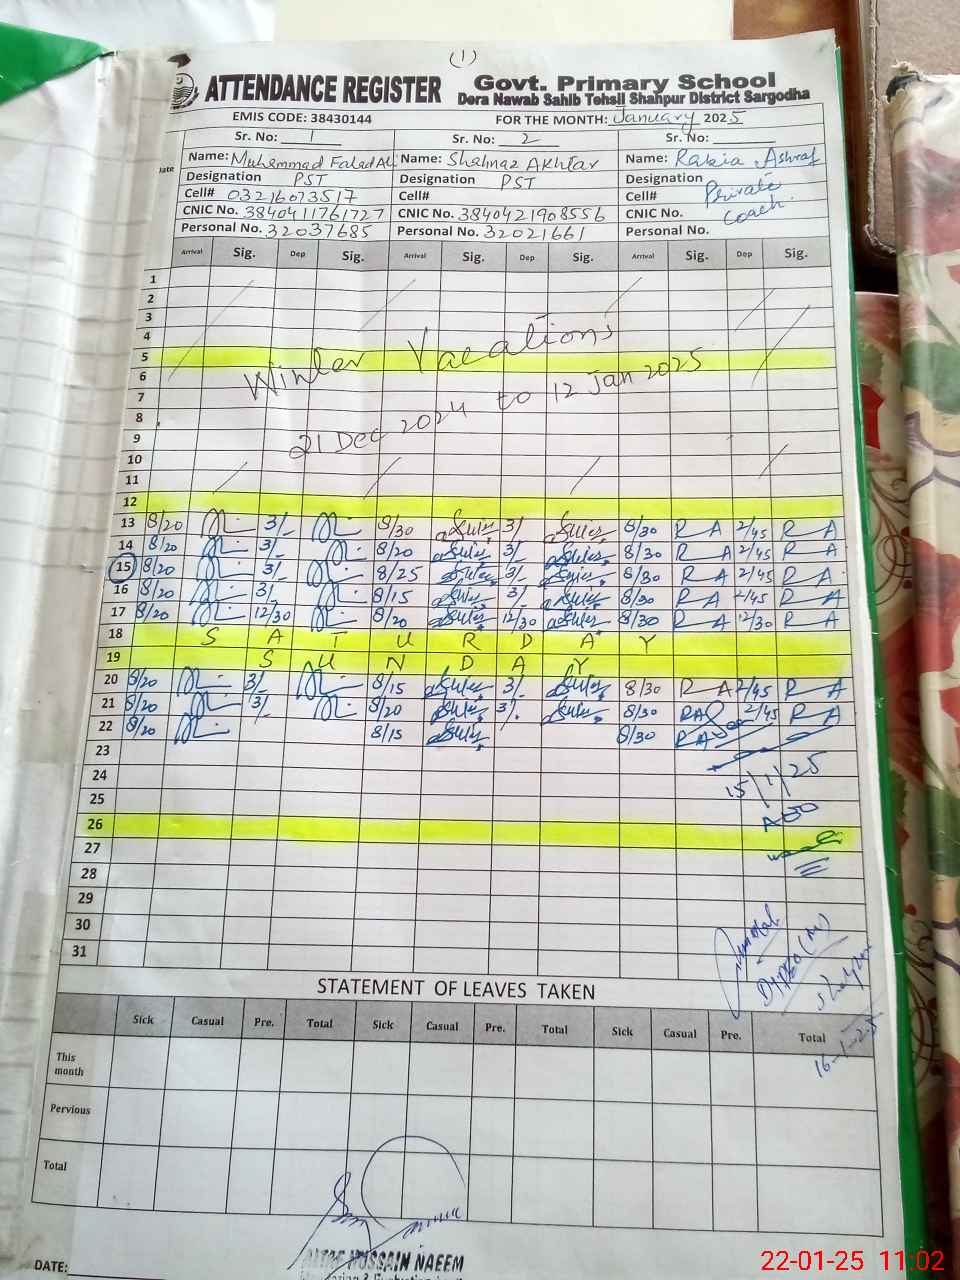 (1)
ATTENDANCE REGISTER Govt. Primary School
Dera Nawab Sahib Tehsil Shahpur District Sargodha
EMIS CODE: 38430144 FOR THE MONTH: January 2025
Sr. No: 1 Sr. No: 2 Sr. No:
Date
Name: Muhammad Falad Ali Name: Shahnaz Akhtar Name: Rabia Ashraf
Designation PST Designation PST Designation Private
Cell# 03216073517 Cell# Cell# Coach.
CNIC No. 3840411761727 CNIC No. 3840421908556 CNIC No.
Personal No. 32037685 Personal No. 32021661 Personal No.
Arrival Sig. Dep Sig. Arrival Sig. Dep Sig. Arrival Sig. Dep Sig.
1
2
3
4
5
Winter Vacations
6
7
21 Dec 2024 to 12 Jan 2025
8
9
10
11
12
13 8/20 3/- 8/30 3/- 8/30 R A 2/45 R A
14 8/20 3/- 8/20 3/- 8/30 R A 2/45 R A
15 8/20 3/- 8/25 3/- 8/30 R A 2/45 R A
16 8/20 3/- 8/15 3/- 8/30 R A 2/45 R A
17 8/20 12/30 8/20 12/30 8/30 R A 12/30 R A
18 S A T U R D A Y
19 S U N D A Y
20 8/20 3/- 8/15 3/- 8/30 R A 2/45 R A
21 8/20 3/- 8/20 3/- 8/30 RA 2/45 R A
22 8/20 8/15 8/30 RA
23
15/1/25
24
25
26
27
28
29
30
31
16-1-25
STATEMENT OF LEAVES TAKEN
Sick Casual Pre. Total Sick Casual Pre. Total Sick Casual Pre. Total
This month
Pervious
Total
ALTAF HUSSAIN NAEEM
DATE:
22-01-25 11:02